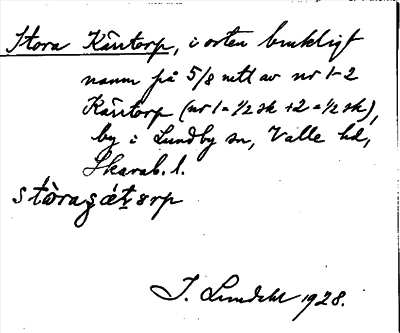 Stora Käntorp, i orten brukligt
namn på 5/8 mtl av nr 1-2
Käntorp (nr 1 = 1/2 sk + 2 = 1/2 sk),
by i Lundby sn, Valle hd,
Skarab. l.
J. Lundahl 1928.